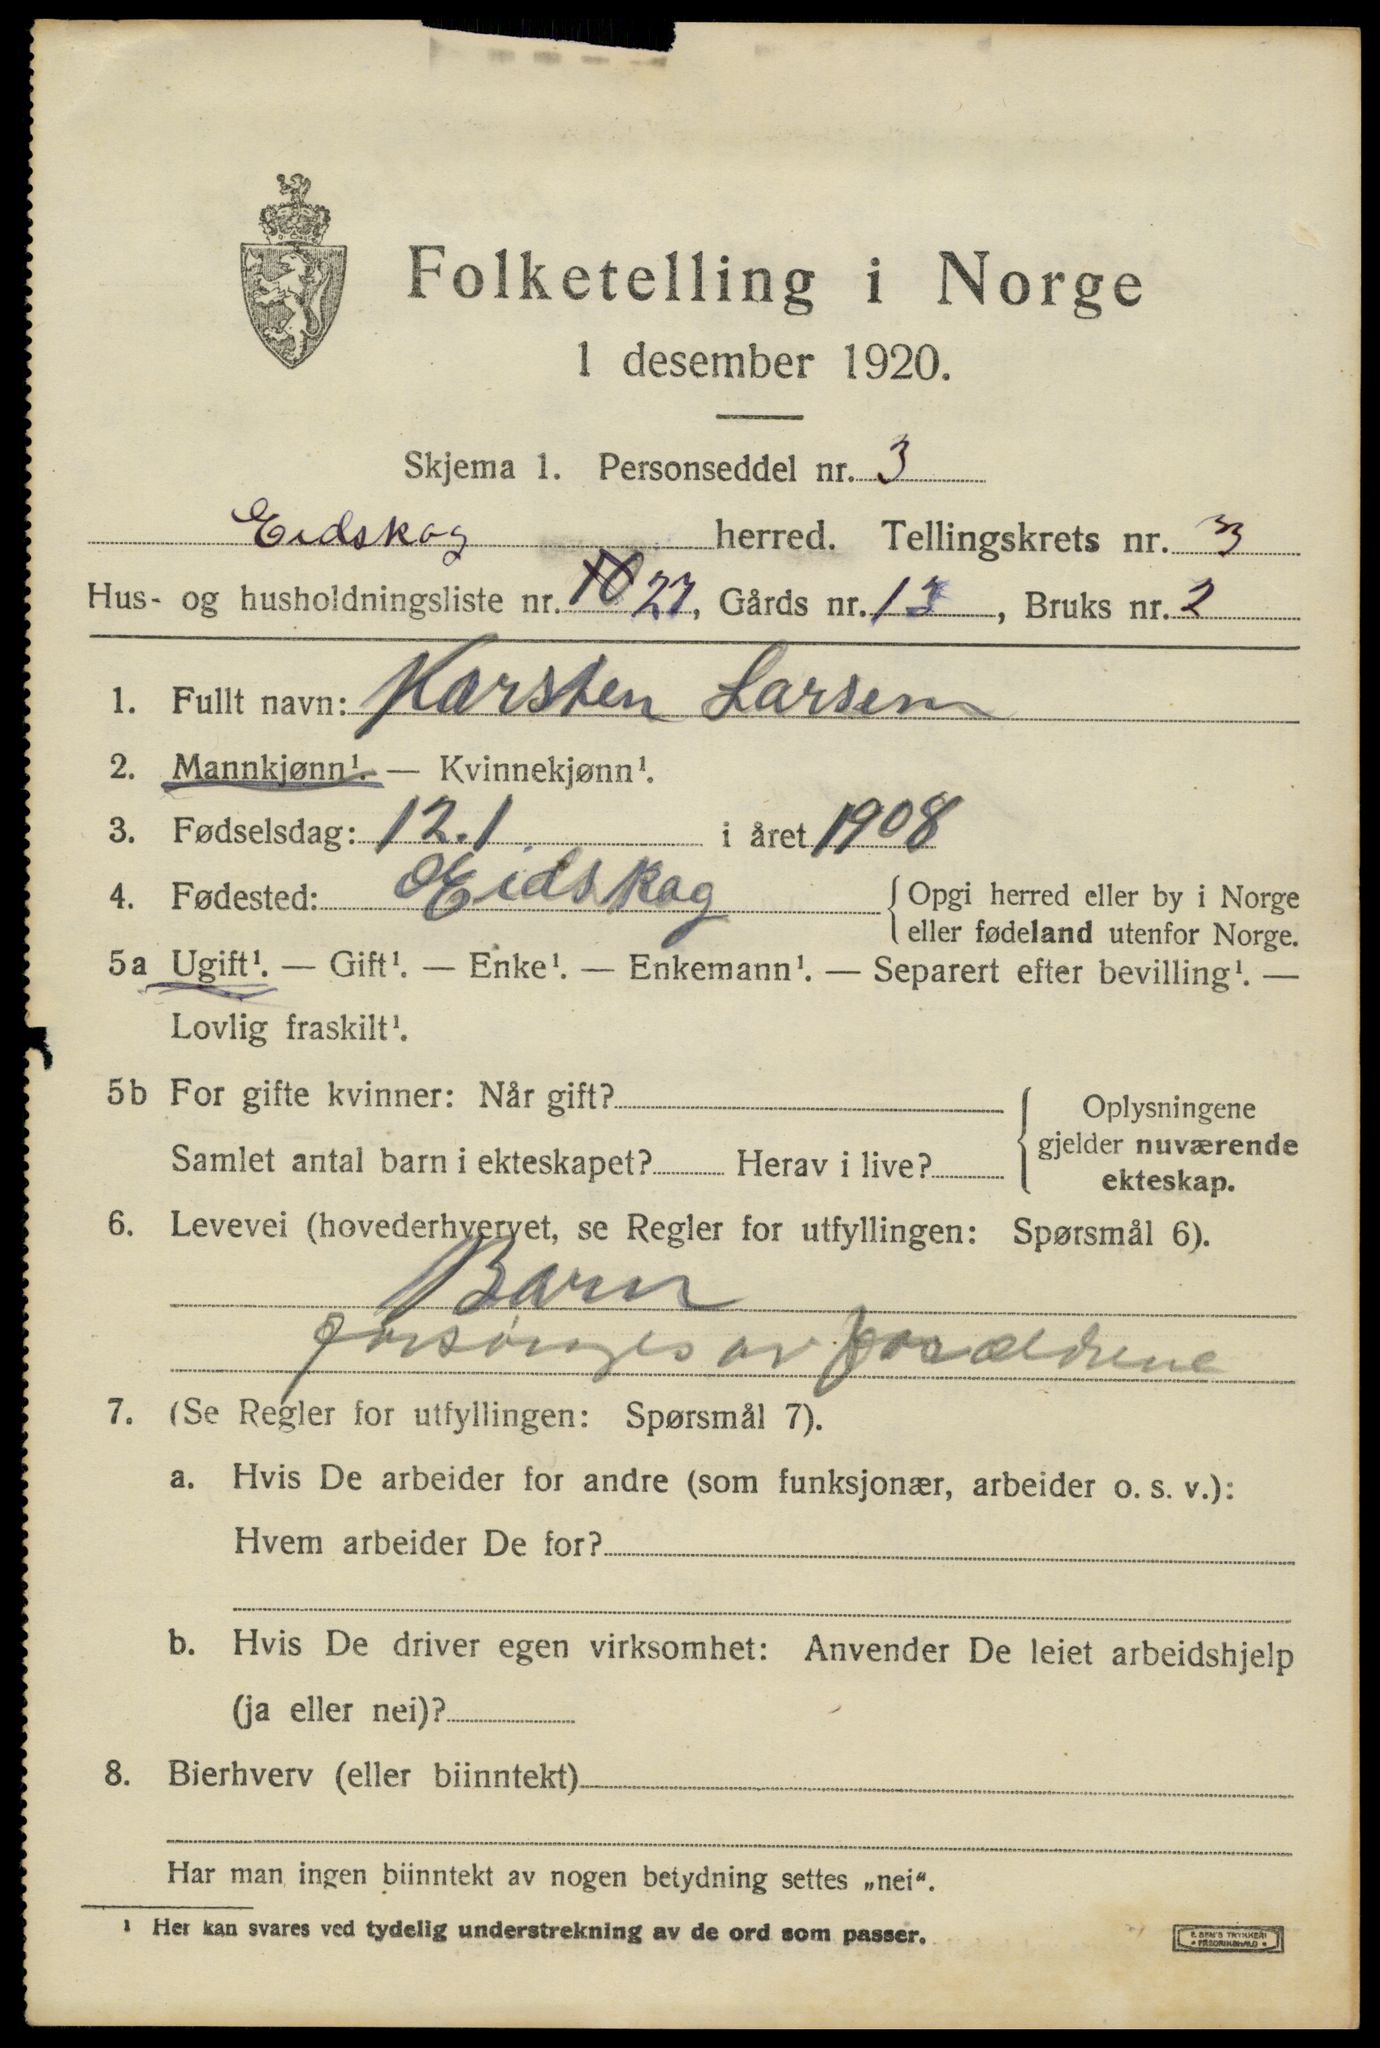 Folketelling i Norge
1 desember 1920.
Skjema 1. Personseddel nr. 3
Eidskog herred. Tellingskrets nr. 3
Hus- og husholdningsliste nr. 10 27, Gårds nr. 13, Bruks nr. 2
1. Fullt navn: Karsten Larsen
2. Mannkjønn¹. — Kvinnekjønn¹.
3. Fødselsdag: 12.1 i året 1908
4. Fødested: Eidskog { Opgi herred eller by i Norge
eller fødeland utenfor Norge.
5a Ugift¹. — Gift¹. — Enke¹. — Enkemann¹. — Separert efter bevilling¹. —
Lovlig fraskilt¹.
5b For gifte kvinner: Når gift? { Oplysningene
gjelder nuværende
Samlet antal barn i ekteskapet? Herav i live?
ekteskap.
6. Levevei (hovederhvervet, se Regler for utfyllingen: Spørsmål 6).
Barn
forsørges av forældrene
7. (Se Regler for utfyllingen: Spørsmål 7).
a. Hvis De arbeider for andre (som funksjonær, arbeider o. s. v.):
Hvem arbeider De for?
b. Hvis De driver egen virksomhet: Anvender De leiet arbeidshjelp
(ja eller nei)?
8. Bierhverv (eller biinntekt)
Har man ingen biinntekt av nogen betydning settes „nei“.
¹ Her kan svares ved tydelig understrekning av de ord som passer.